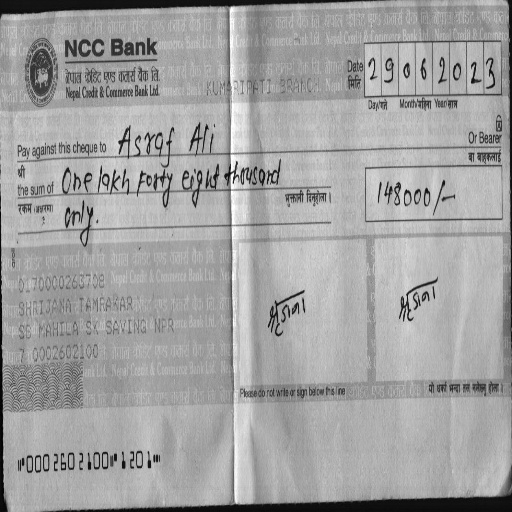 NCC Bank
नेपाल क्रेडिट एण्ड कमर्स बैंक लि.
Nepal Credit & Commerce Bank Ltd.
KUMARIPATI BRANCH
Date 29062023
मिति
Day/गते Month/महिना Year/साल
Pay against this cheque to Asraf Ali Or Bearer
श्री वा वाहकलाई
the sum of One lakh Forty eight thousand 148000/-
रकम (अक्षरमा) only. भुक्तानी दिनुहोला।
SHRIJANA TAMRAKAR
SS MAHILA SK SAVING NPR
7 0002602100
श्रृजना श्रृजना
Please do not write or sign below this line
⑈0002602100⑈1201⑈